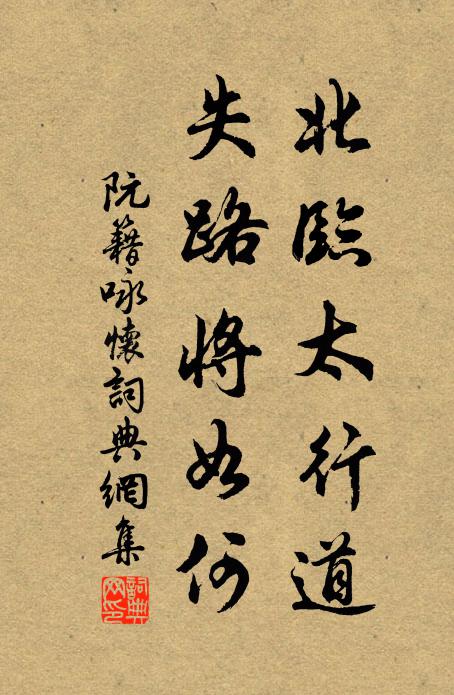 北臨太行道
失路將如何
阮籍咏懷詞典網集
詞典網印